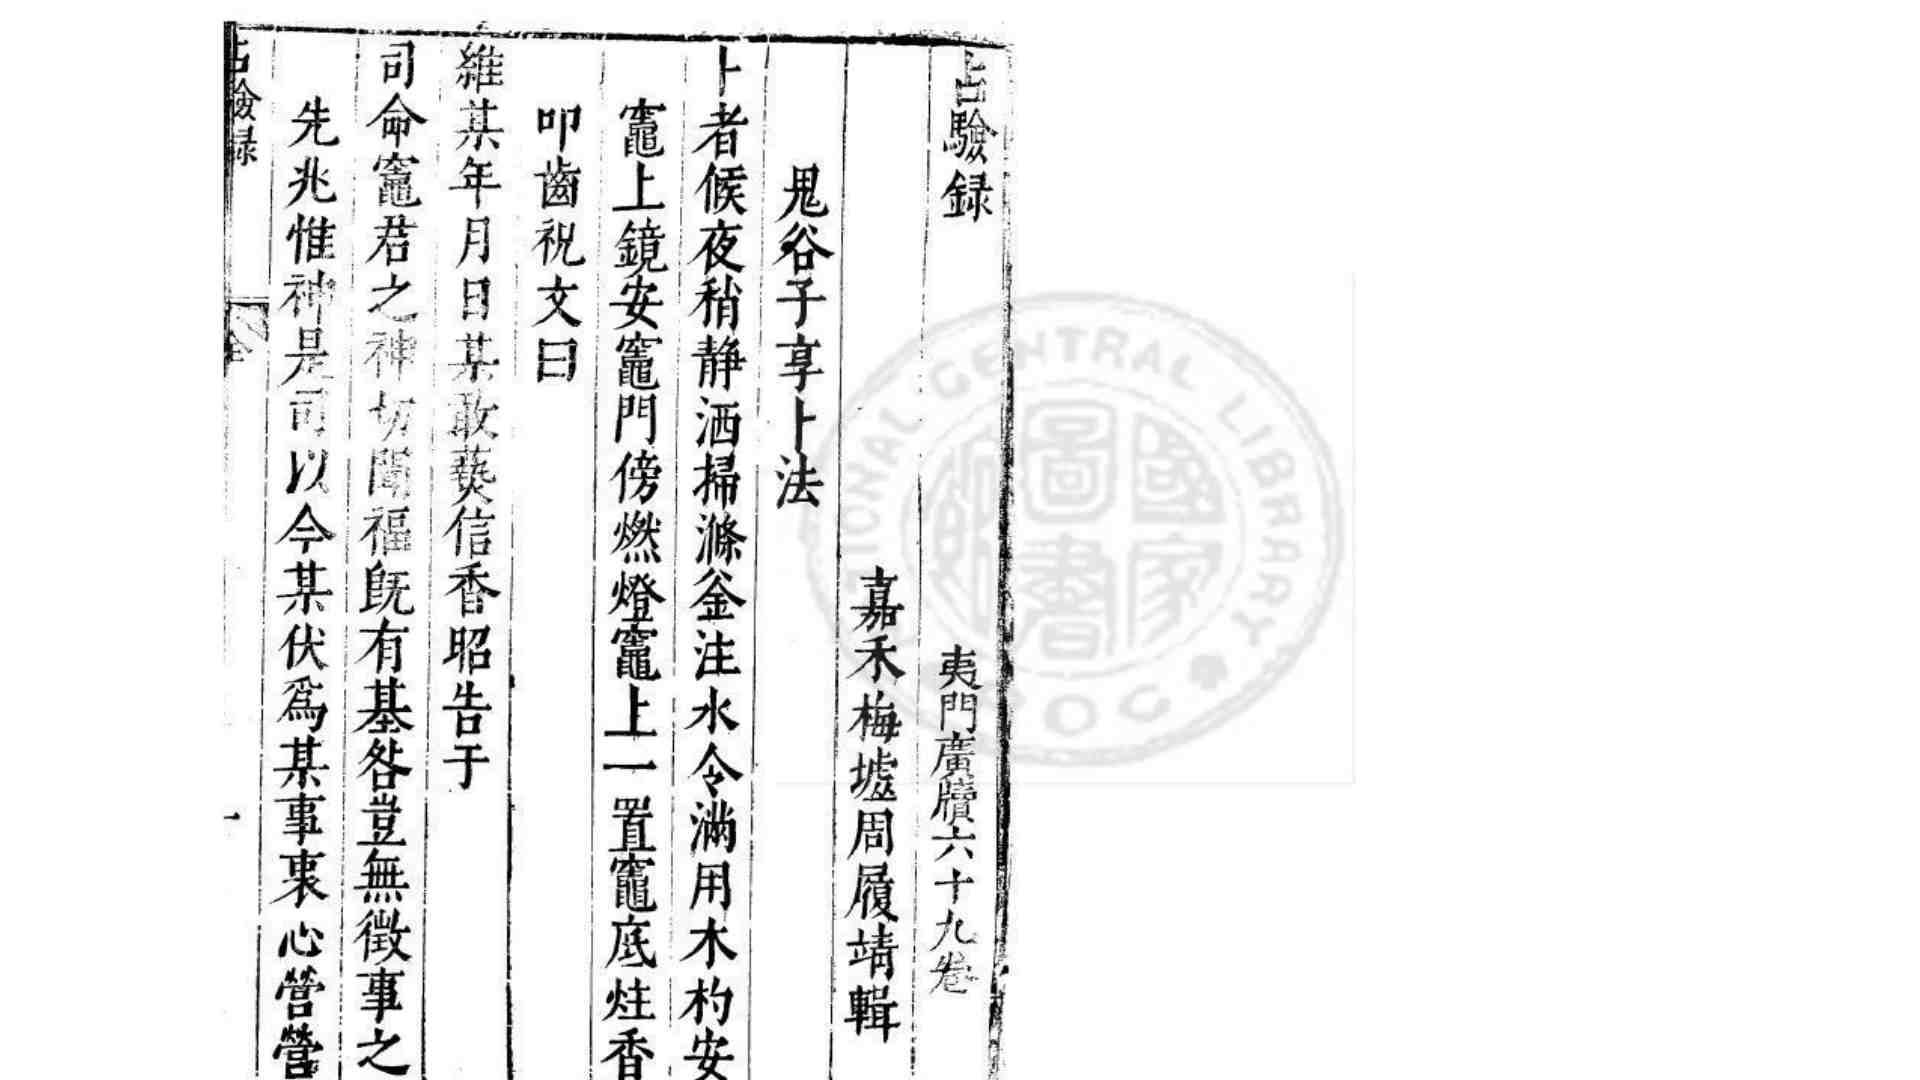 占驗録
夷門廣牘六十九卷
嘉禾梅墟周履靖輯
鬼谷子享卜法
卜者候夜稍静洒掃滌釜注水令滿用木杓安
竈上鏡安竈門傍燃燈竈上一置竈底炷香
叩齒祝文曰
維某年月日某敢爇信香昭告于
司命竈君之神切聞福旣有基咎豈無徵事之
先兆惟神是司以今某伏爲某事衷心營營
占驗録
全
一
NATIONAL CENTRAL LIBRARY
國家圖書館